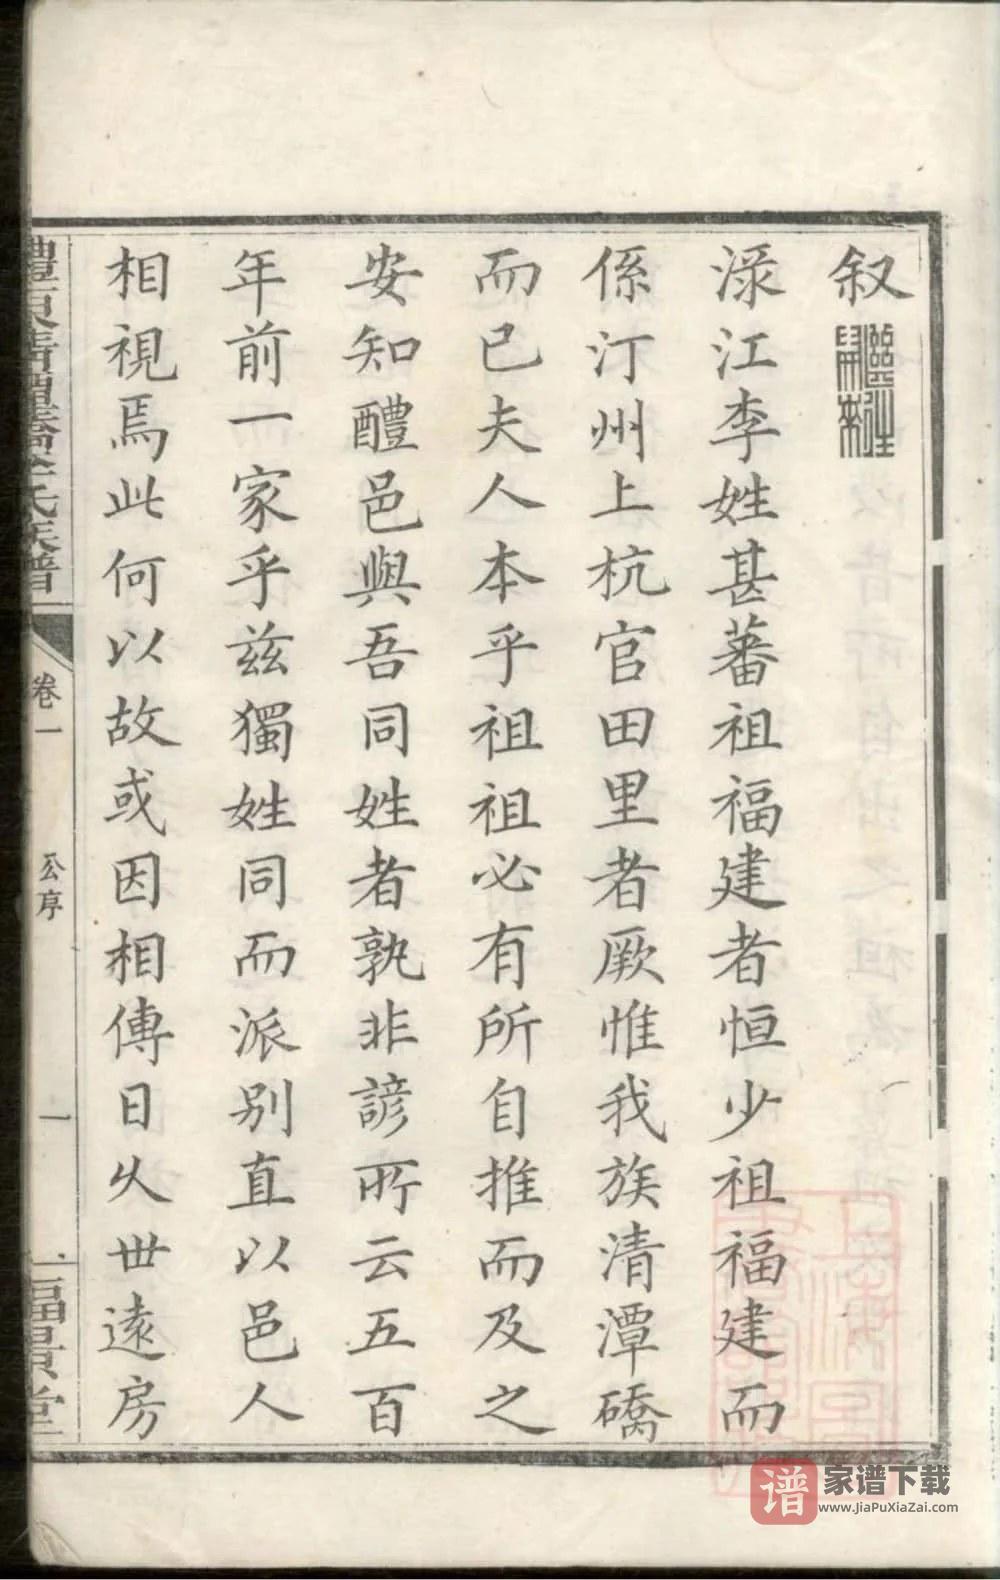 叙
淥江李姓甚蕃祖福建者恒少祖福建而
係汀州上杭官田里者厥惟我族清潭礄
而已夫人本乎祖祖必有所自推而及之
安知醴邑與吾同姓者孰非諺所云五百
年前一家乎兹獨姓同而派别直以邑人
相視焉此何以故或因相傳日乆世遠房
卷一
公序
一
谱
家谱下载
www.JiaPuXiaZai.com